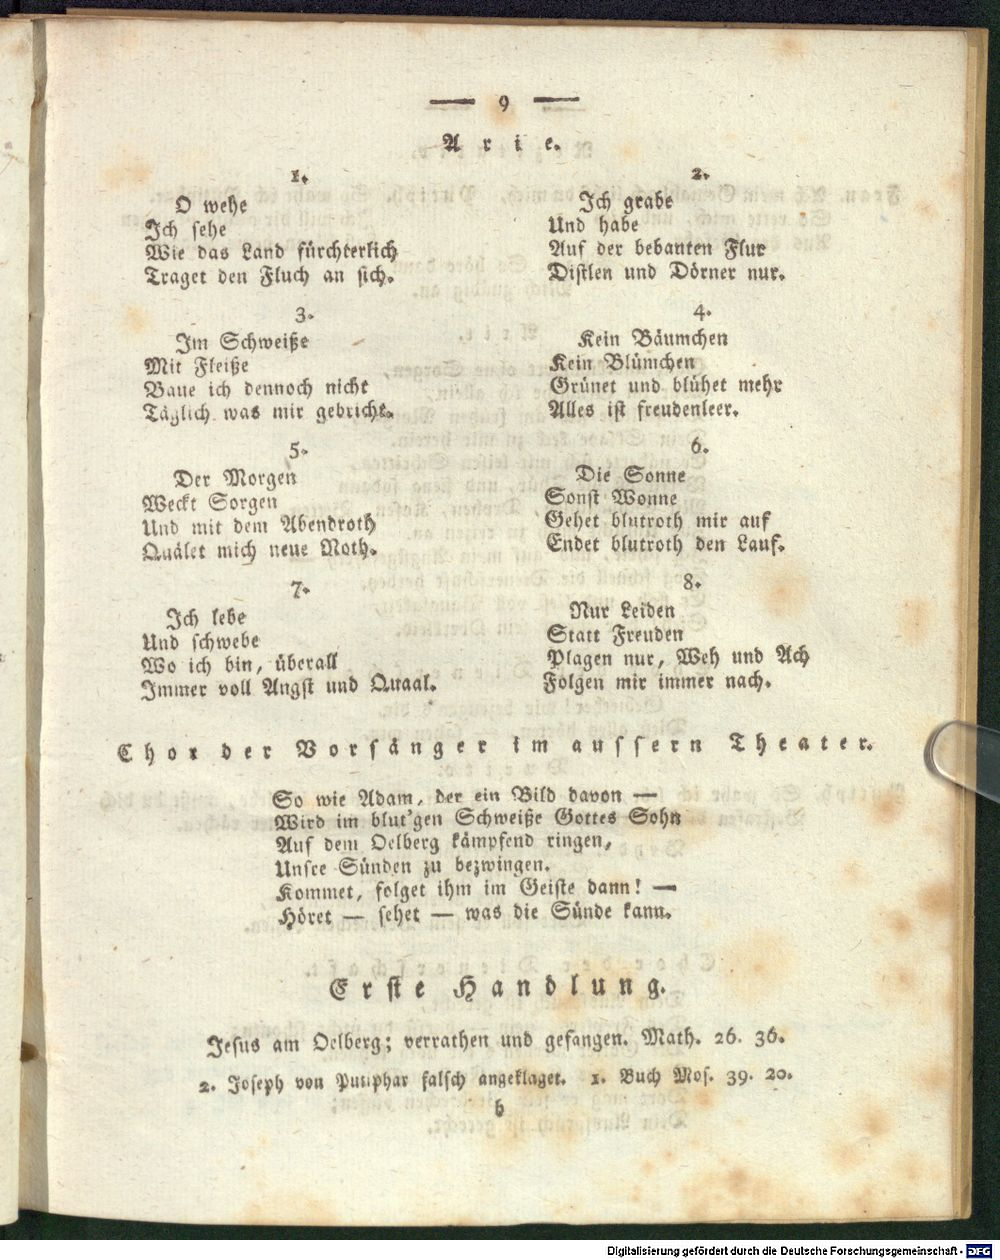 — 9 —
Arie.
1.
O wehe
Ich sehe
Wie das Land fürchterlich
Traget den Fluch an sich.
2.
Ich grabe
Und habe
Auf der bebanten Flur
Distlen und Dörner nur.
3.
Im Schweiße
Mit Fleiße
Baue ich dennoch nicht
Täglich was mir gebricht.
4.
Kein Bäumchen
Kein Blümchen
Grünet und blühet mehr
Alles ist freudenleer.
5.
Der Morgen
Weckt Sorgen
Und mit dem Abendroth
Quälet mich neue Noth.
6.
Die Sonne
Sonst Wonne
Gehet blutroth mir auf
Endet blutroth den Lauf.
7.
Ich lebe
Und schwebe
Wo ich bin, überall
Immer voll Angst und Quaal.
8.
Nur Leiden
Statt Freuden
Plagen nur, Weh und Ach
Folgen mir immer nach.
Chor der Vorsänger im aussern Theater.
So wie Adam, der ein Bild davon —
Wird im blut'gen Schweiße Gottes Sohn
Auf dem Oelberg kämpfend ringen,
Unsre Sünden zu bezwingen.
Kommet, folget ihm im Geiste dann! —
Höret — sehet — was die Sünde kann.
Erste Handlung.
Jesus am Oelberg; verrathen und gefangen. Math. 26. 36.
2. Joseph von Putiphar falsch angeklaget. 1. Buch Mos. 39. 20.
b
Digitalisierung gefördert durch die Deutsche Forschungsgemeinschaft - DFG